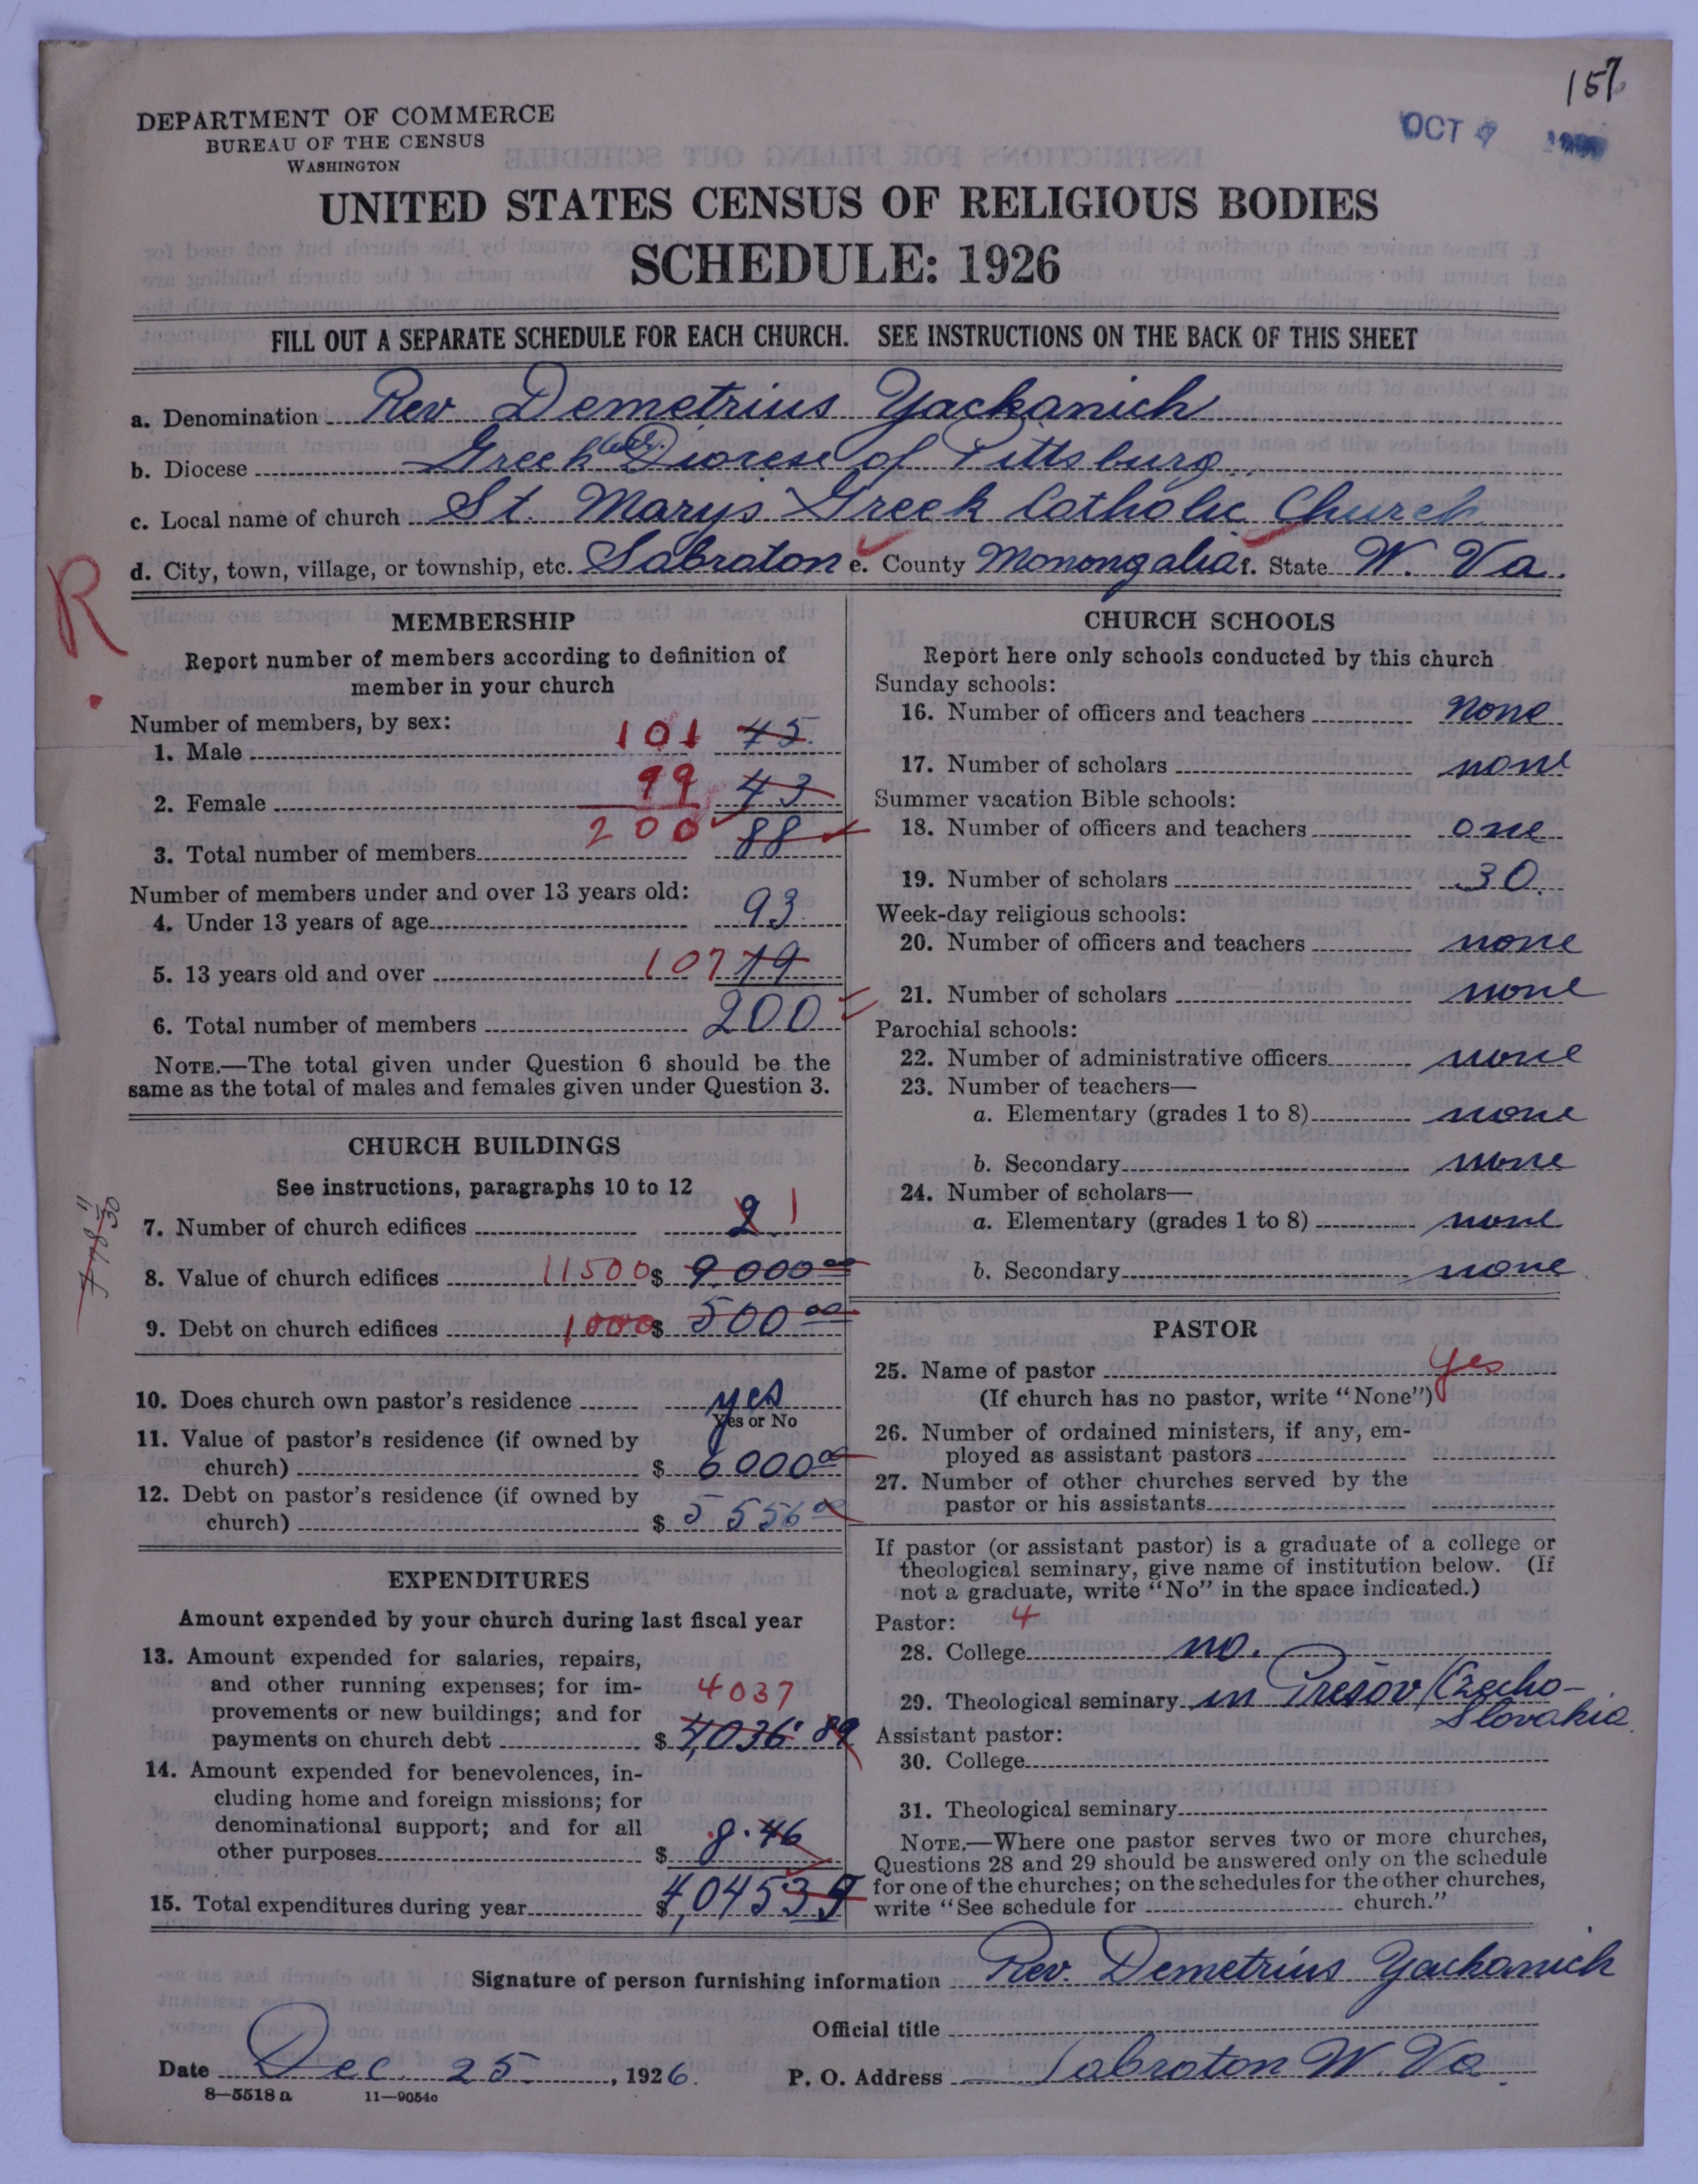 157
OCT 7
DEPARTMENT OF COMMERCE
BUREAU OF THE CENSUS
WASHINGTON
UNITED STATES CENSUS OF RELIGIOUS BODIES
SCHEDULE: 1926
FILL OUT A SEPARATE SCHEDULE FOR EACH CHURCH. SEE INSTRUCTIONS ON THE BACK OF THIS SHEET
a. Denomination Rev Demetrius Yackanich
b. Diocese Greek Cath. Diocese of Pittsburg
c. Local name of church St. Marys Greek Catholic Church
d. City, town, village, or township, etc. Sabraton e. County Monongalia f. State W. Va.
R.
MEMBERSHIP
Report number of members according to definition of
member in your church
Number of members, by sex:
1. Male 101 45
2. Female 99 43
3. Total number of members 200 88
Number of members under and over 13 years old:
4. Under 13 years of age 93
5. 13 years old and over 107 19
6. Total number of members 200
NOTE.—The total given under Question 6 should be the
same as the total of males and females given under Question 3.
CHURCH BUILDINGS
See instructions, paragraphs 10 to 12
7. Number of church edifices 2 1
8. Value of church edifices 11500 $ 9000 00
9. Debt on church edifices 1000 $ 500 00
10. Does church own pastor's residence yes
Yes or No
11. Value of pastor's residence (if owned by
church) $ 6000 00
12. Debt on pastor's residence (if owned by
church) $ 5556 00
EXPENDITURES
Amount expended by your church during last fiscal year
13. Amount expended for salaries, repairs,
and other running expenses; for im-
provements or new buildings; and for 4037
payments on church debt $ 4,036 89
14. Amount expended for benevolences, in-
cluding home and foreign missions; for
denominational support; and for all
other purposes $ 8.46
15. Total expenditures during year $ 4,045 35
CHURCH SCHOOLS
Report here only schools conducted by this church
Sunday schools:
16. Number of officers and teachers none
17. Number of scholars none
Summer vacation Bible schools:
18. Number of officers and teachers one
19. Number of scholars 30
Week-day religious schools:
20. Number of officers and teachers none
21. Number of scholars none
Parochial schools:
22. Number of administrative officers none
23. Number of teachers—
a. Elementary (grades 1 to 8) none
b. Secondary none
24. Number of scholars—
a. Elementary (grades 1 to 8) none
b. Secondary none
PASTOR
25. Name of pastor yes
(If church has no pastor, write "None")
26. Number of ordained ministers, if any, em-
ployed as assistant pastors
27. Number of other churches served by the
pastor or his assistants
If pastor (or assistant pastor) is a graduate of a college or
theological seminary, give name of institution below. (If
not a graduate, write "No" in the space indicated.)
Pastor: 4
28. College no.
29. Theological seminary in Presov/Czecho-
Slovakia
Assistant pastor:
30. College
31. Theological seminary
NOTE.—Where one pastor serves two or more churches,
Questions 28 and 29 should be answered only on the schedule
for one of the churches; on the schedules for the other churches,
write "See schedule for church."
Signature of person furnishing information Rev. Demetrius Yackanich
Official title
Date Dec. 25 , 1926. P. O. Address Sabraton W. Va.
8—5518 a 11—9054c